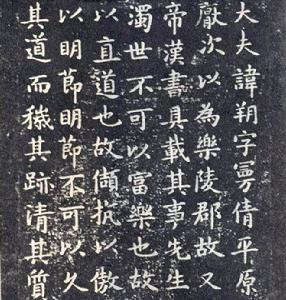 大夫諱朔字曼倩平原
厭次以為樂陵郡故又
帝漢書具載其事先生
濁世不可以富樂也故
以直道也故傾抗以傲
以明節明節不可以久
其道而穢其跡清其質